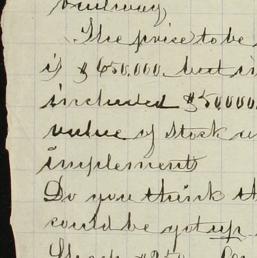 railway
The price to be
is $650,000. but in
included $50,000.
value of stock
implements
Do you think th
could be got up